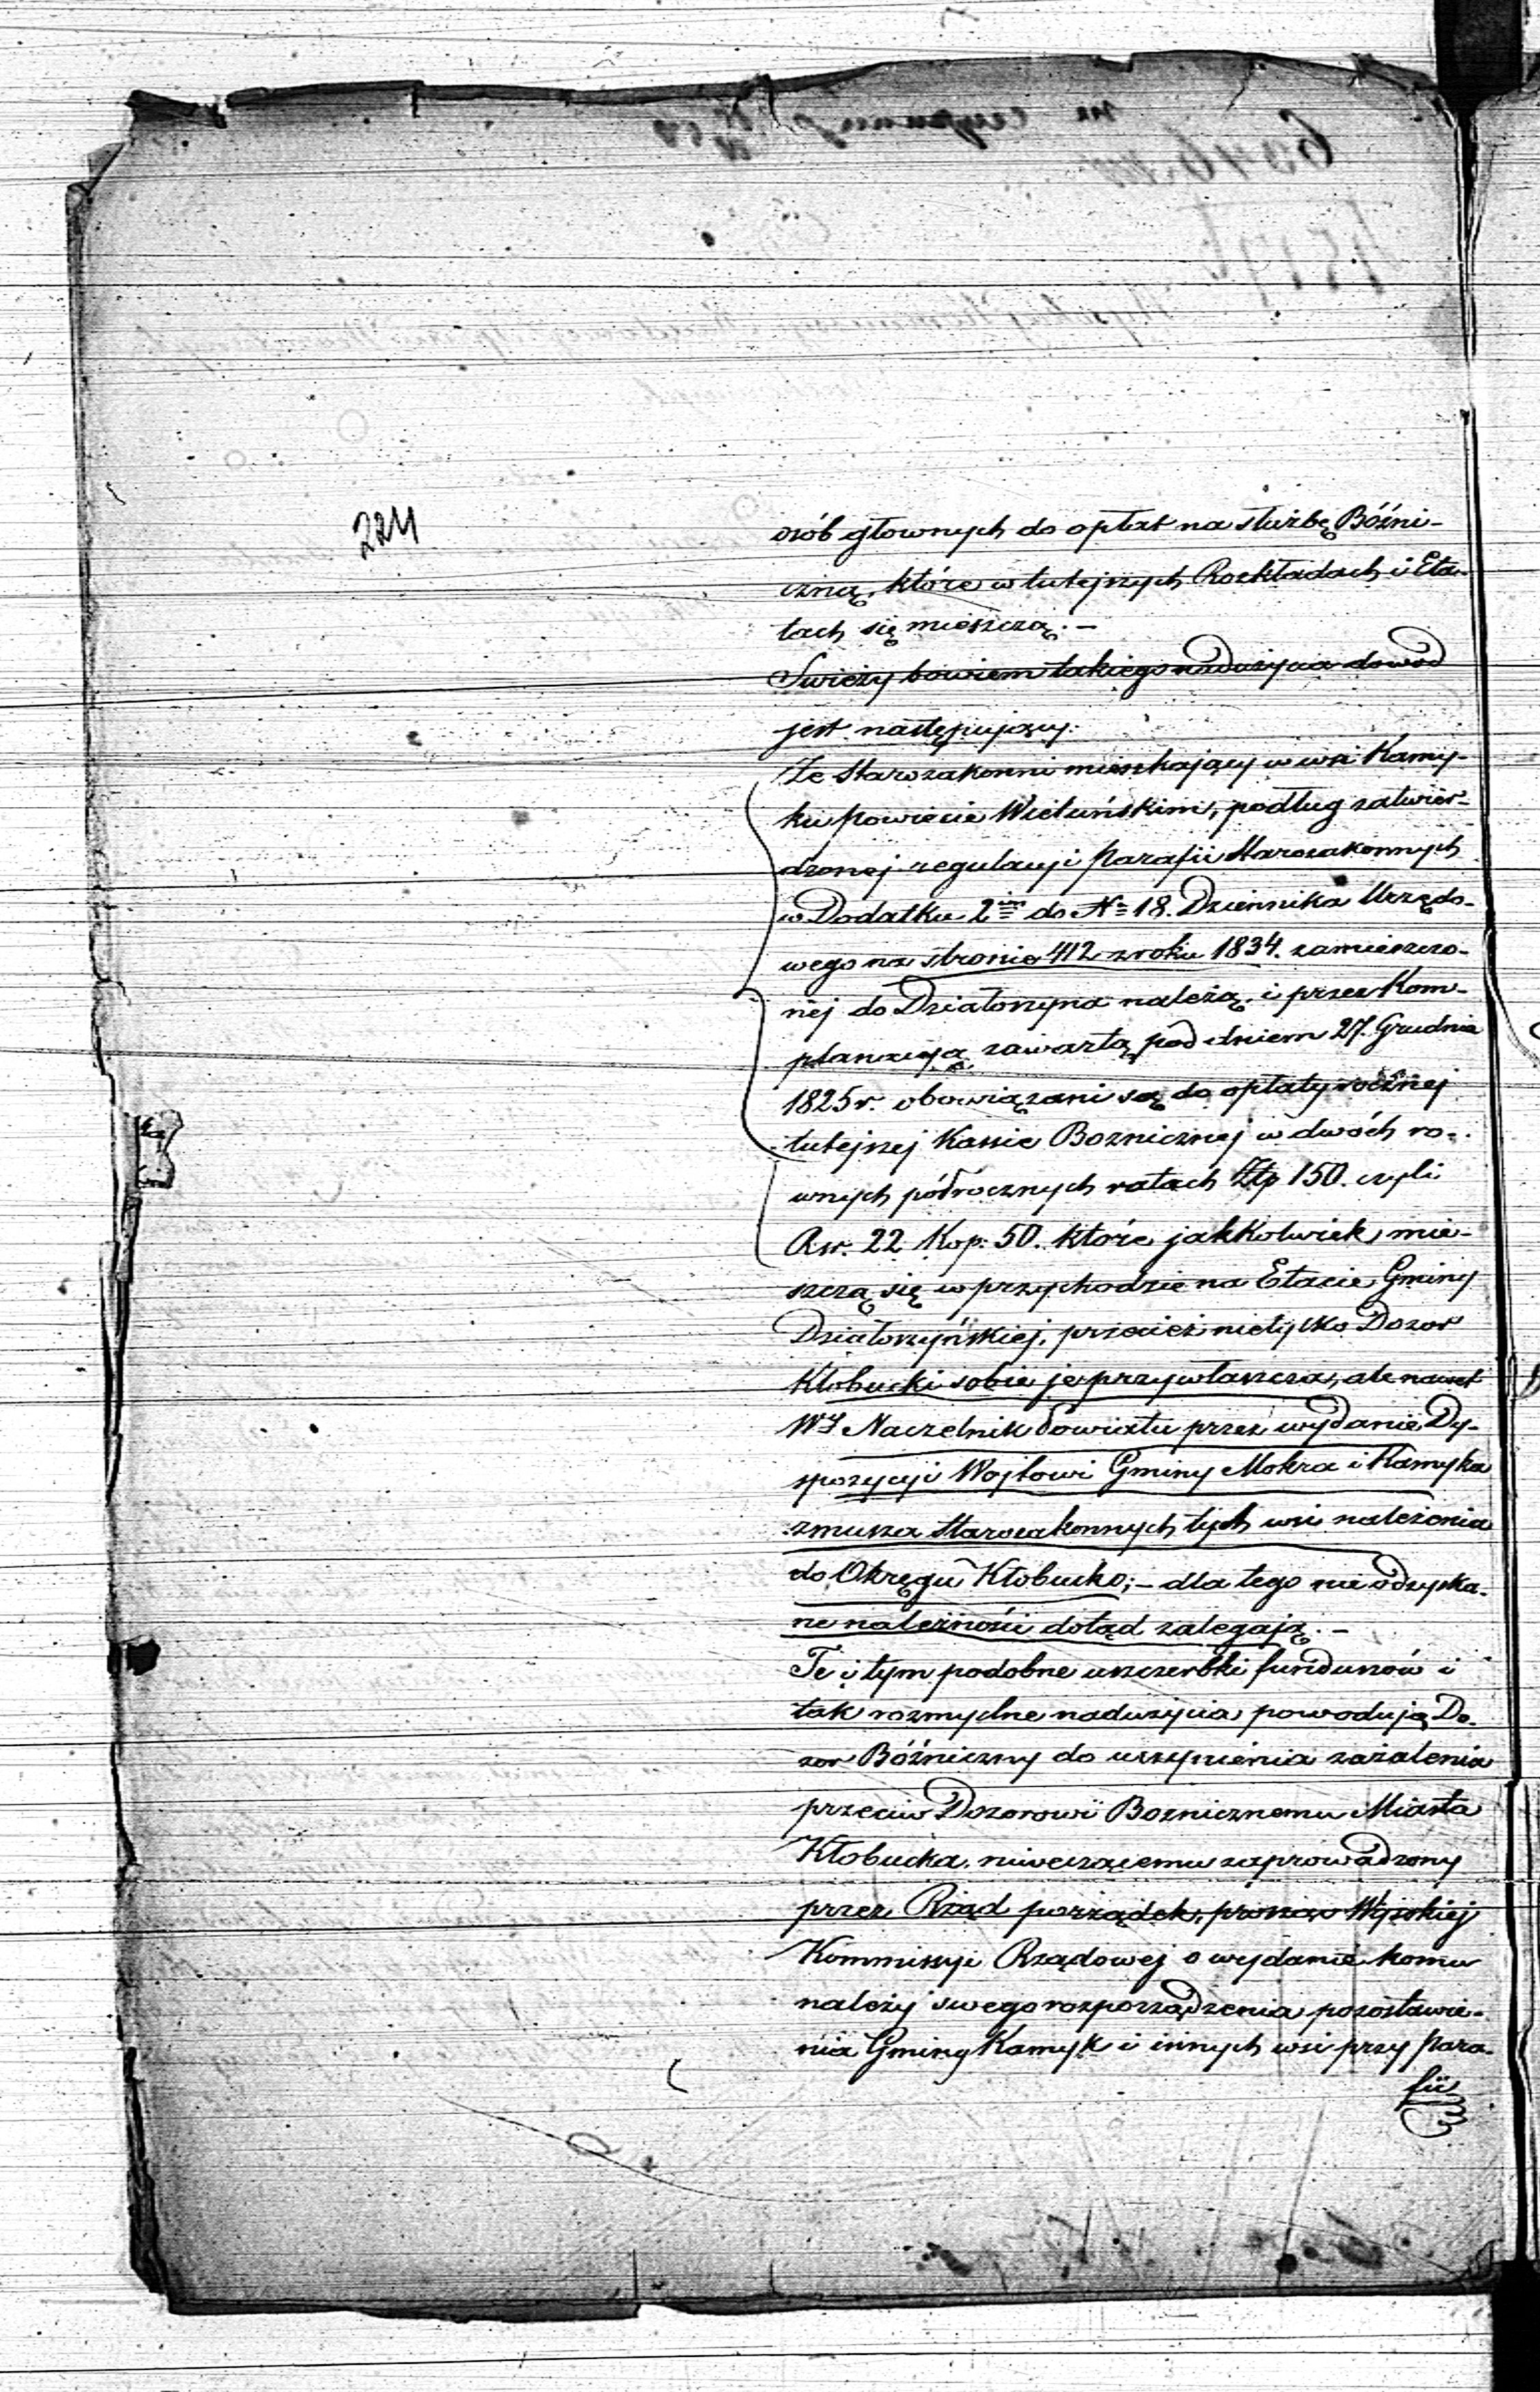 224
osób głownych do opłat na służbę Bóźni-
czną, które w tutejszych Rozkładach i Eta-
tach się mieszczą. —
Swieży bowiem takiego nadużycia dowod
jest następujący:
Że Starozakonni mieszkający w wsi Kamy-
ku powiecie Wieluńskim, podług zatwier-
dzonej regulacyi Parafii Starozakonnych
w Dodatku 2im do No 18. Dziennika Urzędo-
wego na stronie 412 z roku 1834. zamieszczo-
nej do Działoszyna należą, i przez Kom-
planacyą zawartą pod dniem 27. Grudnia
1825 r. obowiązani są do opłaty roczney
tutejszej Kassie Boznicznej w dwóch ro-
wnych półrocznych ratach Złp 150. czyli
Rsr. 22 Kop: 50. które jakkolwiek mie-
szczą się w przychodzie na Etacie Gminy
Działoszyńskiej, przecież nietylko Dozor
Kłobucki sobie je przywłaszcza, ale nawet
WJ Naczelnik Powiatu przez wydanie Dy-
spozycyi Wojtowi Gminy Mokra i Kamyka
zmusza starozakonnych tych wsi należenia
do Okręgu Kłobucko; — dla tego nie odzyska-
ne należności dotąd zalegają. —
Te i tym podobne uszczerbki funduszów i
tak rozmyślne nadużycia powodują Do-
zor Bóźniczny do uczynienia zażalenia
przeciw Dozorowi Boznicznemu Miasta
Kłobucka, niweczącemu zaprowadzony
przez Rząd porządek, prosząc Wysokiej
Kommissyi Rządowej o wydanie komu
należy swego rozporządzenia pozostawie-
nia Gminy Kamyk i innych wsi przy Para-
fii